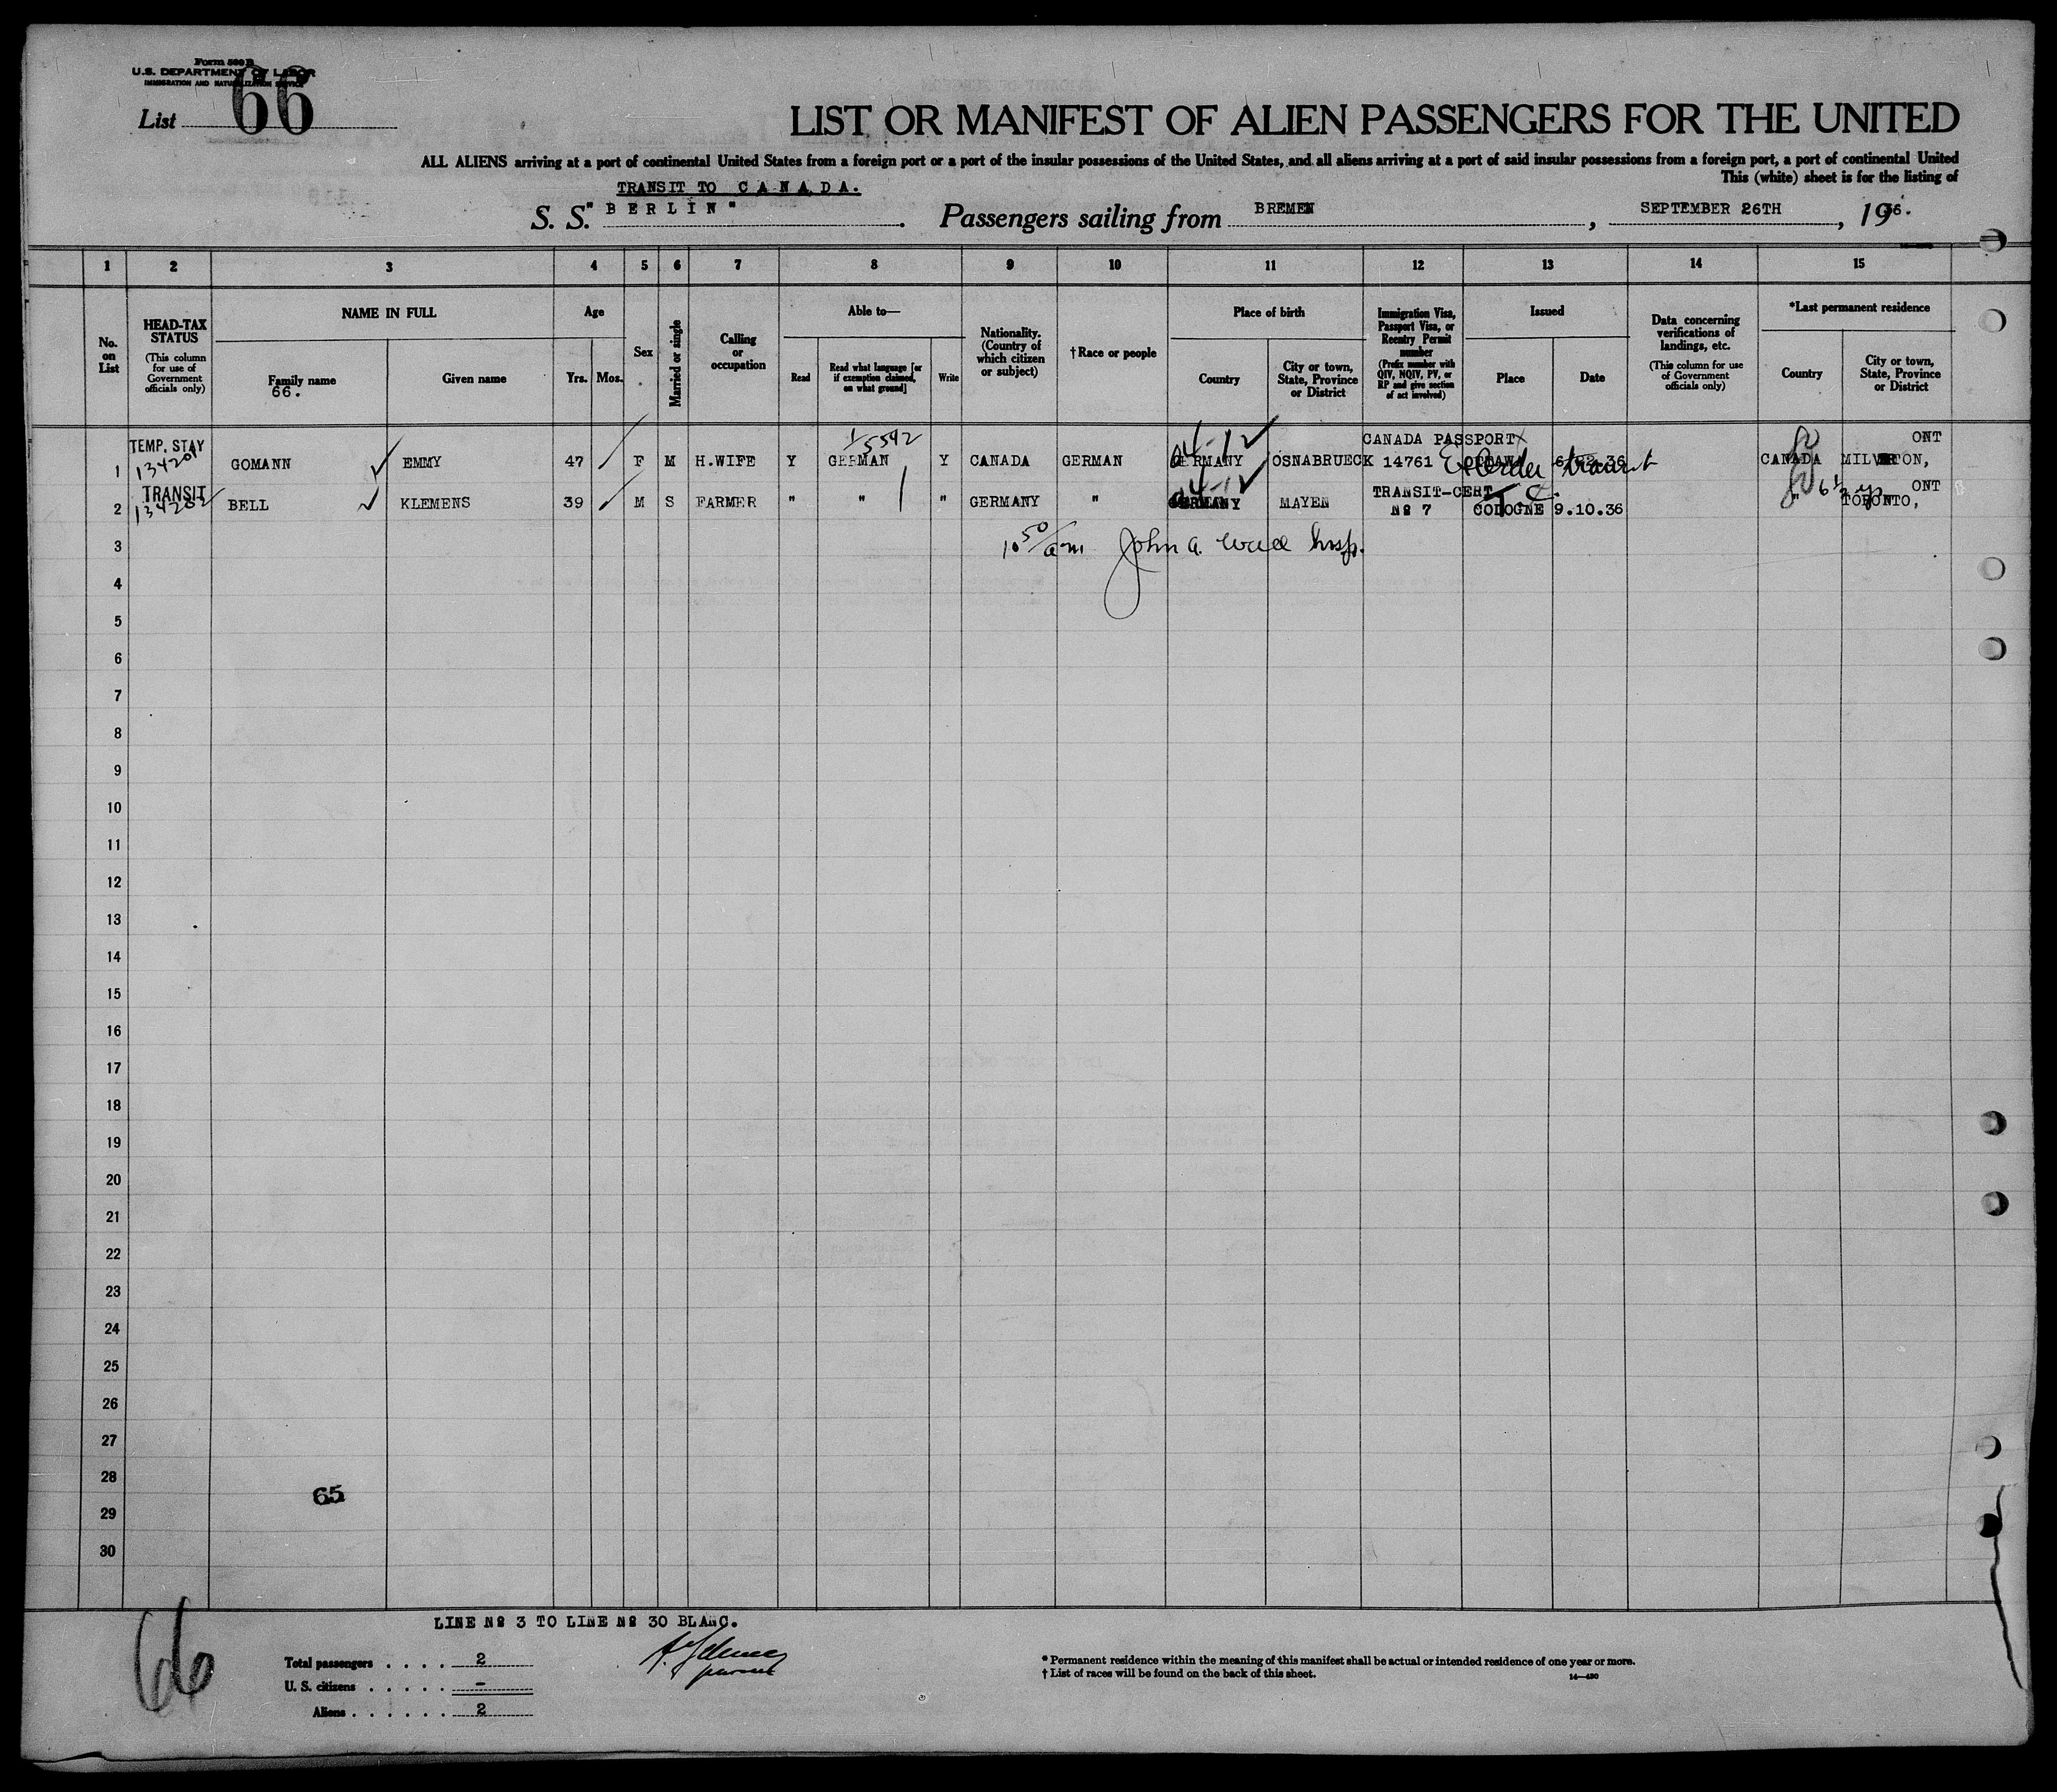 Form 500 B
U.S. DEPARTMENT OF LABOR
IMMIGRATION AND NATURALIZATION SERVICE
List 66
LIST OR MANIFEST OF ALIEN PASSENGERS FOR THE UNITED
ALL ALIENS arriving at a port of continental United States from a foreign port or a port of the insular possessions of the United States, and all aliens arriving at a port of said insular possessions from a foreign port, a port of continental United
This (white) sheet is for the listing of
TRANSIT TO CANADA.
S. S. "BERLIN". Passengers sailing from BREMEN, SEPTEMBER 26TH, 1936.
1 2 3 4 5 6 7 8 9 10 11 12 13 14 15
No. on List
HEAD-TAX STATUS
(This column for use of Government officials only)
NAME IN FULL
Family name
66.
Given name
Age
Yrs. Mos.
Sex
Married or single
Calling or occupation
Able to—
Read
Read what language [or if exemption claimed, on what ground]
Write
Nationality. (Country of which citizen or subject)
†Race or people
Place of birth
Country
City or town, State, Province or District
Immigration Visa, Passport Visa, or Reentry Permit number
(Prefix number with QIV, NQIV, PV, or RP and give section of act involved)
Issued
Place
Date
Data concerning verifications of landings, etc.
(This column for use of Government officials only)
*Last permanent residence
Country
City or town, State, Province or District
TEMP. STAY 5592 CANADA PASSPORT ONT
134201
1 GOMANN EMMY 47 F M H.WIFE Y GERMAN Y CANADA GERMAN GERMANY OSNABRUECK 14761 OTTAWA transit CANADA MILVERTON,
TRANSIT TRANSIT-CERT 6½ yr ONT
134202
2 BELL KLEMENS 39 M S FARMER " " " GERMANY " GERMANY MAYEN Nº 7 COLOGNE 9.10.36 " TORONTO,
3 10 50/am John A. Insp.
4
5
6
7
8
9
10
11
12
13
14
15
16
17
18
19
20
21
22
23
24
25
26
27
28
65
29
30
LINE Nº 3 TO LINE Nº 30 BLANC.
66
Total passengers . . . . 2
U. S. citizens . . . . . –
Aliens . . . . . . 2
* Permanent residence within the meaning of this manifest shall be actual or intended residence of one year or more.
† List of races will be found on the back of this sheet.
14—430